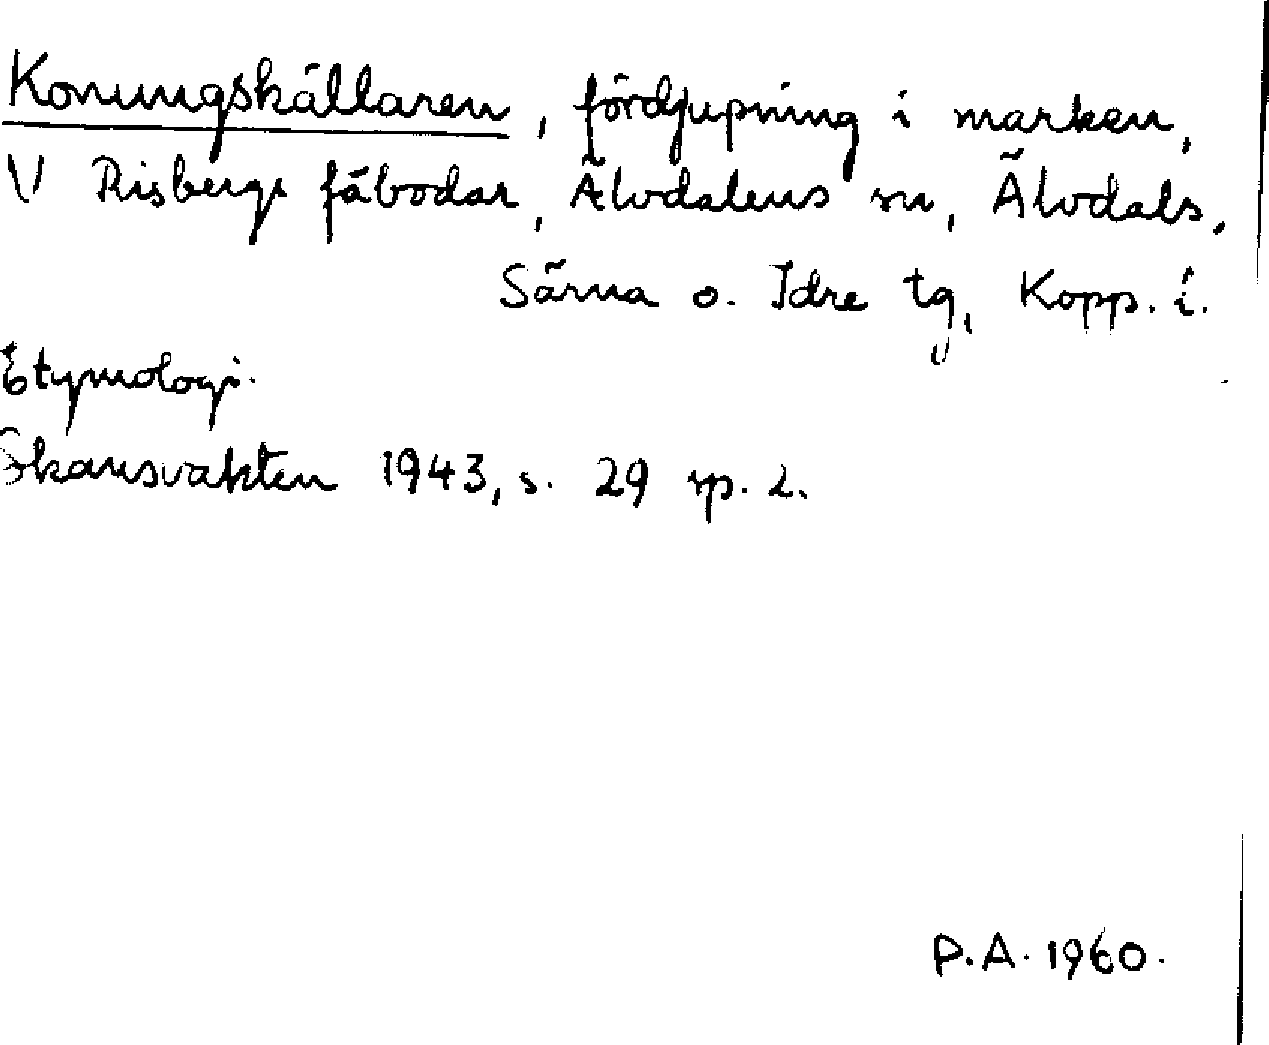 Konungskällaren, fördjupning i marken,
V Risbergs fäbodar, Älvdalens sn, Älvdals,
Särna o. Idre tg, Kopp. l.
Etymologi.
Skansvakten 1943, s. 29 sp. 2.
P.A. 1960.